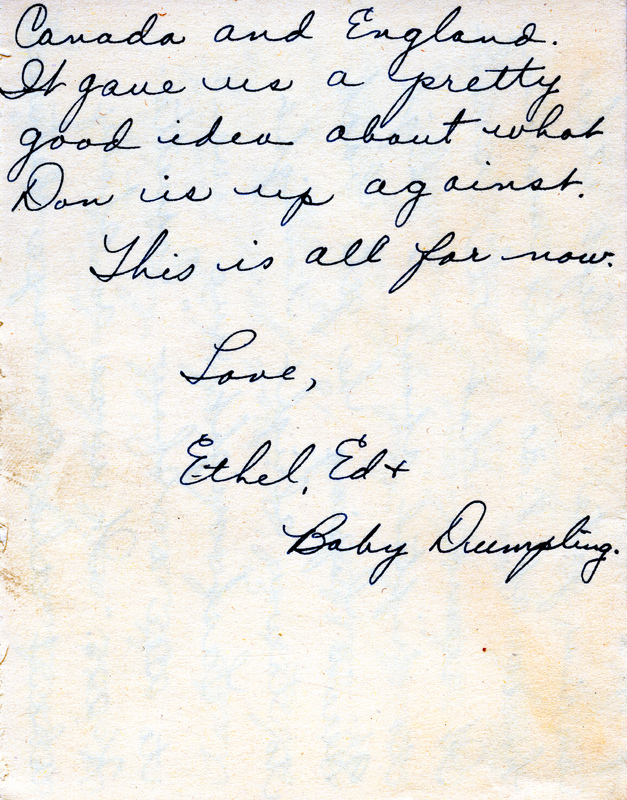 Canada and England.
It gave us a pretty
good idea about what
Don is up against.
This is all for now.
Love,
Ethel, Ed +
Baby Dumpling.